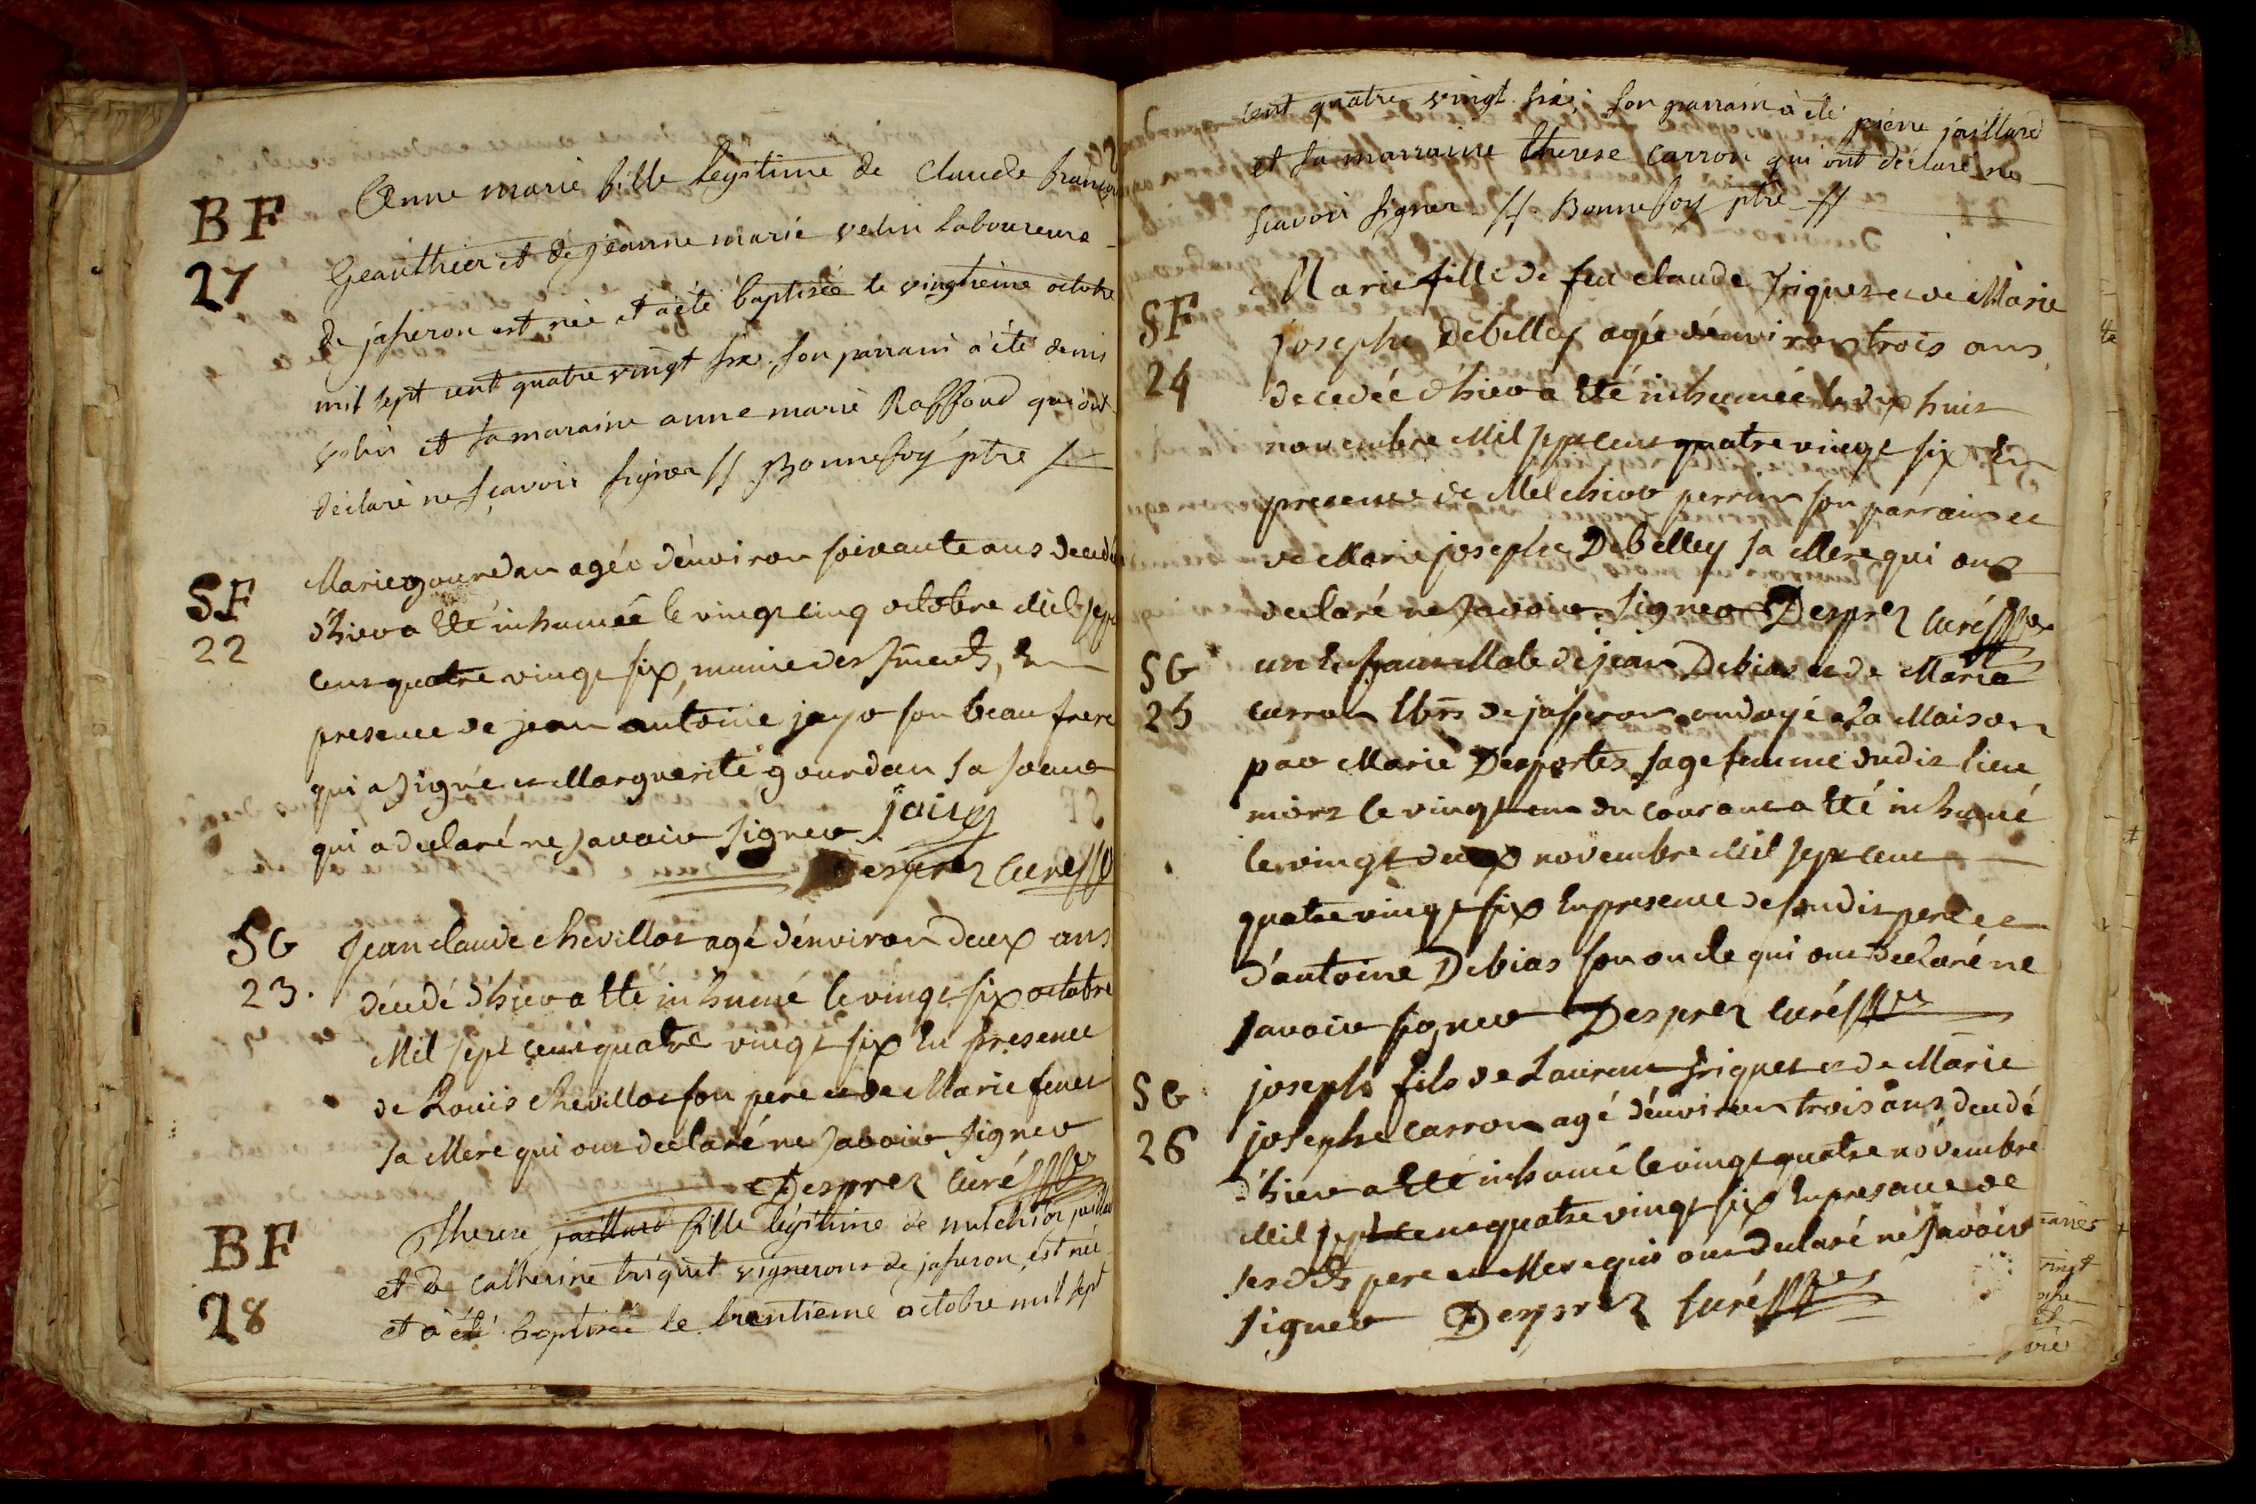 BF
27
Anne marie fille legitime de Claude françois
Geauthier et de jeanne marie velin Laboureurs
de jasseron est née et a été baptisée le vingtieme octobre
mil sept cent quatre vingt six, son parrain a été denis
velin et sa maraine anne marie Raffoud qui ont
déclaré ne sçavoir signer // Bonnefoy ptre //
SF
22
Marie gourdan agée d'environ soixante ans decedée
d'hier a été inhumée le vingt cinq octobre Mil sept
cent quatre vingt six, munie des sments, En
presence de jean antoine jayr son beau frere
qui a signé et Marguerite gourdan sa soeur
qui a declaré ne savoir signer
Desprez curé
SG
23.
Jean claude chevillot agé d'environ deux ans
décedé d'hier a été inhumé le vingt six octobre
Mil sept cent quatre vingt six En presence
de Louis chevillot son pere et de Marie
sa Mere qui ont declaré ne savoir signer
Desprez curé
BF
28
Therese jaillard fille légitime de melchior jaillard
et de catherine triquet vignerons de jasseron, est née
et a été baptisée le trentieme octobre mil sept
cent quatre vingt six; son parrain a été pierre jaillard
et sa marraine therese carron qui ont déclaré ne
scavoir signer // Bonnefoy ptre //
SF
24
Marie fille de feu claude Triquet et de Marie
josephe Debelley agée d'environ trois ans
decedée d'hier a été inhumée le dix huit
novembre Mil sept cent quatre vingt six En
presence de Melchior perrin son parrain et
de Marie josephe Debelley sa Mere qui ont
declaré ne savoir signer Desprez curé
SG
25
un Enfant Male de jean Debias et de Marie
carron de jasseron ondoyé a La Maison
par Marie Desportes sage femme dudit lieu
mort le vingt un du courant a été inhumé
le vingt deux novembre Mil sept cent
quatre vingt six En presence de sondit pere et
d'antoine Debias son oncle qui ont declaré ne
savoir signer Desprez curé
SG
26
joseph fils de Laurent Triquet et de Marie
josephe carron agé d'environ trois ans decedé
d'hier a été inhumé le vingt quatre novembre
Mil sept cent quatre vingt six En presence de
sesdits pere et Mere qui ont declaré ne savoir
signer Desprez curé